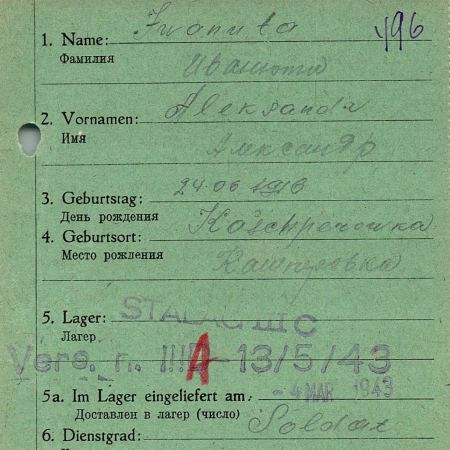 496
1. Name: Iwaniuta
Фамилия
Иванюта
2. Vornamen: Aleksandr
Имя
Александр
3. Geburtstag: 24.06 1916
День рождения
4. Geburtsort: Koschperowka
Место рождения
Кашперовка
5. Lager: STALAG III C
Лагер
Vers. n. III A - 13/5/43
5a. Im Lager eingeliefert am: - 4 MAR 1943
Доставлен в лагер (число)
6. Dienstgrad: Soldat